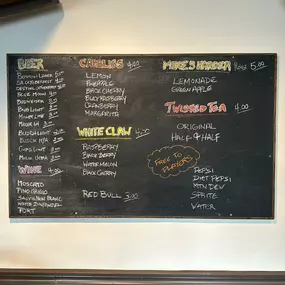 BEER
BOSTON LAGER 5.00
BLUE MOON
BUDWEISER
BUD LIGHT
MILLER LITE
BUSCH N/A
COORS LIGHT
MICH ULTRA
WINE 4.00
MOSCATO
PINOT GRIGIO
SAUVIGNON BLANC
WHITE ZINFANDEL
PORT
4.00
LEMON
PINEAPPLE
BLACK CHERRY
CRANBERRY
MARGARITA
WHITE CLAW
RASPBERRY
BLACK BERRY
WATERMELON
BLACK CHERRY
RED BULL 3.00
MIKE'S HARDER 5.00
LEMONADE
GREEN APPLE
TWISTED TEA 4.00
ORIGINAL
HALF & HALF
FREE TO
PLAYERS
PEPSI
DIET PEPSI
MTN DEW
SPRITE
WATER